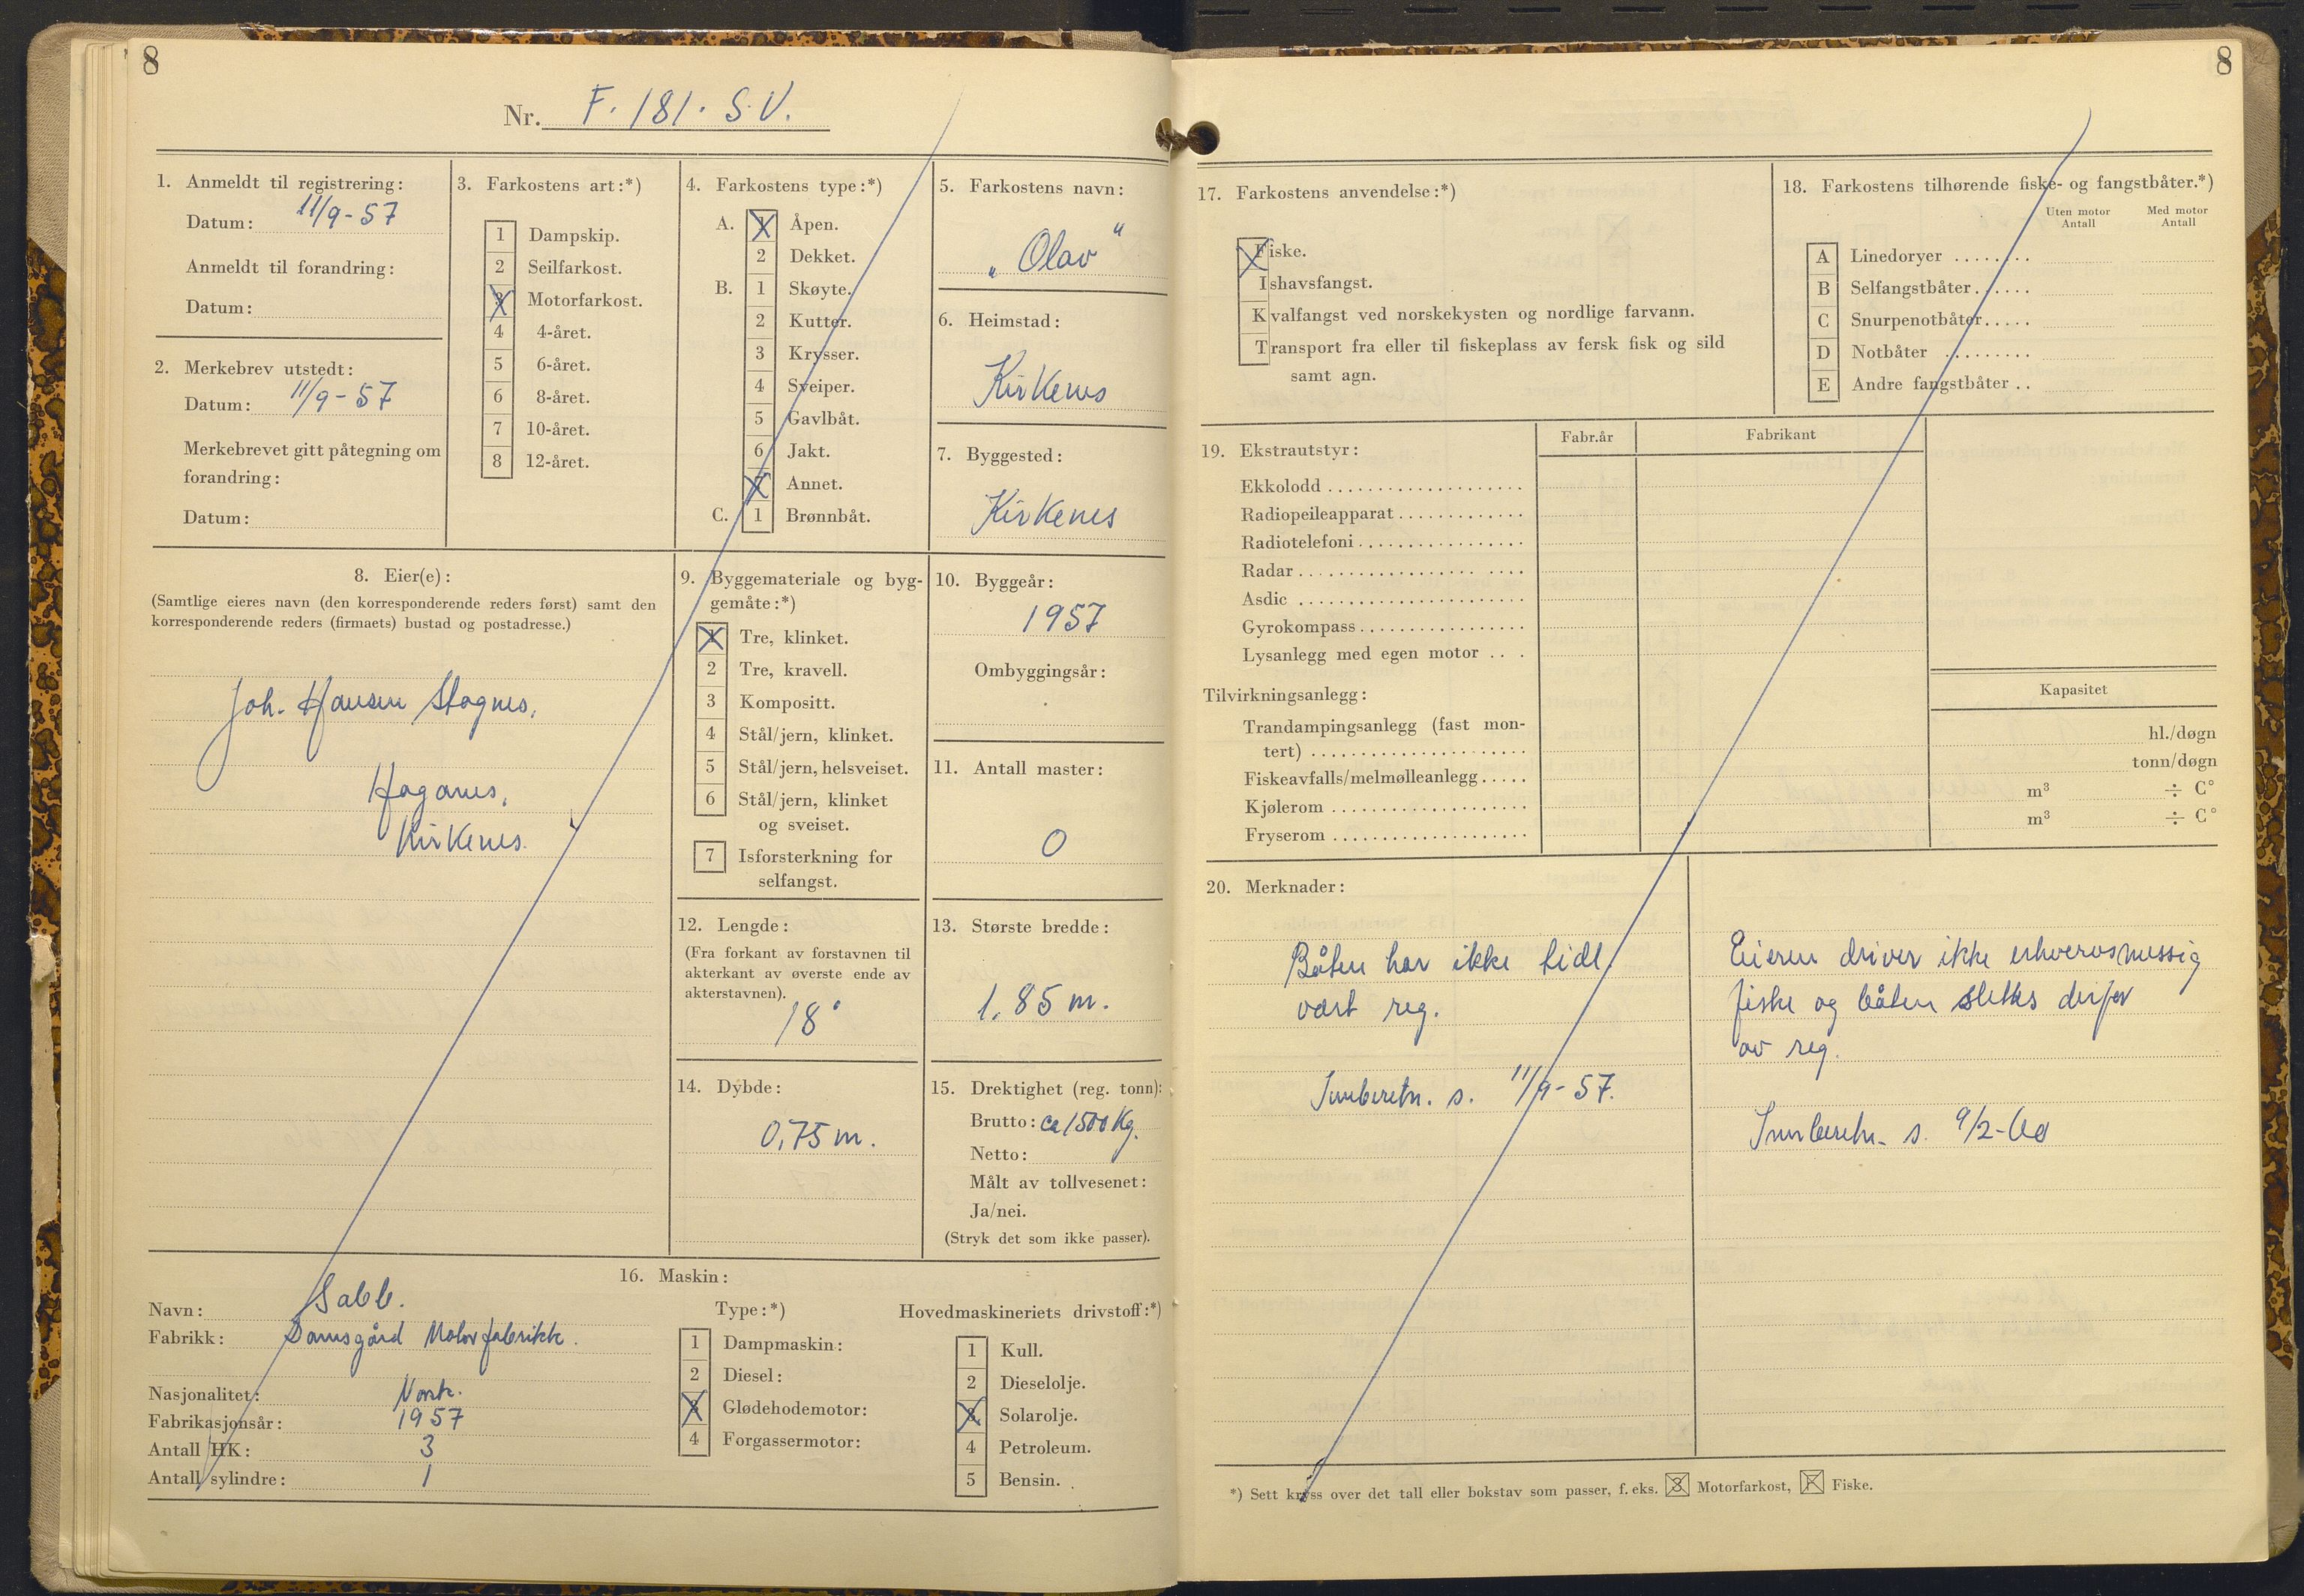 8
Nr. F. 181. S.V.
1. Anmeldt til registrering:
Datum: 11/9-57
Anmeldt til forandring:
Datum:
2. Merkebrev utstedt:
Datum: 11/9-57
Merkebrevet gitt påtegning om
forandring:
Datum:
3. Farkostens art:*)
1 Dampskip.
2 Seilfarkost.
3 Motorfarkost.
4 4-året.
5 6-året.
6 8-året.
7 10-året.
8 12-året.
4. Farkostens type:*)
A. 1 Åpen.
2 Dekket.
B. 1 Skøyte.
2 Kutter.
3 Krysser.
4 Sveiper.
5 Gavlbåt.
6 Jakt.
7 Annet.
C. 1 Brønnbåt.
5. Farkostens navn:
„Olav"
6. Heimstad:
Kirkenes
7. Byggested:
Kirkenes
8. Eier(e):
(Samtlige eieres navn (den korresponderende reders først) samt den
korresponderende reders (firmaets) bustad og postadresse.)
Joh. Hansen
Kirkenes.
9. Byggemateriale og byg-
gemåte:*)
1 Tre, klinket.
2 Tre, kravell.
3 Kompositt.
4 Stål/jern, klinket.
5 Stål/jern, helsveiset.
6 Stål/jern, klinket
og sveiset.
7 Isforsterkning for
selfangst.
10. Byggeår:
1957
Ombyggingsår:
11. Antall master:
0
12. Lengde:
(Fra forkant av forstavnen til
akterkant av øverste ende av
akterstavnen).
18'
13. Største bredde:
1,85 m.
14. Dybde:
0,75 m.
15. Drektighet (reg. tonn):
Brutto: ca 1500 Kg.
Netto:
Målt av tollvesenet:
Ja/nei.
(Stryk det som ikke passer).
16. Maskin:
Navn: Sabb.
Fabrikk: Damsgård Motorfabrikk.
Nasjonalitet: Norsk.
Fabrikasjonsår: 1957
Antall HK: 3
Antall sylindre: 1
Type:*)
1 Dampmaskin:
2 Diesel:
3 Glødehodemotor:
4 Forgassermotor:
Hovedmaskineriets drivstoff:*)
1 Kull.
2 Dieselolje.
3 Solarolje.
4 Petroleum.
5 Bensin.
8
17. Farkostens anvendelse:*)
Fiske.
Ishavsfangst.
Kvalfangst ved norskekysten og nordlige farvann.
Transport fra eller til fiskeplass av fersk fisk og sild
samt agn.
18. Farkostens tilhørende fiske- og fangstbåter.*)
Uten motor Antall
Med motor Antall
A Linedoryer
B Selfangstbåter
C Snurpenotbåter
D Notbåter
E Andre fangstbåter
19. Ekstrautstyr:
Fabr.år
Fabrikant
Ekkolodd
Radiopeileapparat
Radiotelefoni
Radar
Asdic
Gyrokompass
Lysanlegg med egen motor
Tilvirkningsanlegg:
Kapasitet
Trandampingsanlegg (fast mon-
tert) hl./døgn
Fiskeavfalls/melmølleanlegg tonn/døgn
Kjølerom m³ ÷ C°
Fryserom m³ ÷ C°
20. Merknader:
Båten har ikke tidl.
vært reg.
Innberetn. s. 11/9-57.
Eieren driver ikke erhvervsmessig
fiske og båten slettes derfor
av reg.
Innberetn. s. 9/2-60
*) Sett kryss over det tall eller bokstav som passer, f. eks. 3 Motorfarkost, F Fiske.